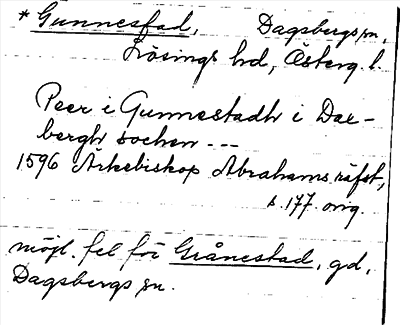 * Gunnestad, Dagsbergs sn,
Lösings hd, Österg. l.
Peer i Gunnestadh i Dax-
berghz sochen ---
1596 Ärkebiskop Abrahams räfst,
s. 177. orig.
möjl. fel för Grånestad, gd,
Dagsbergs sn.